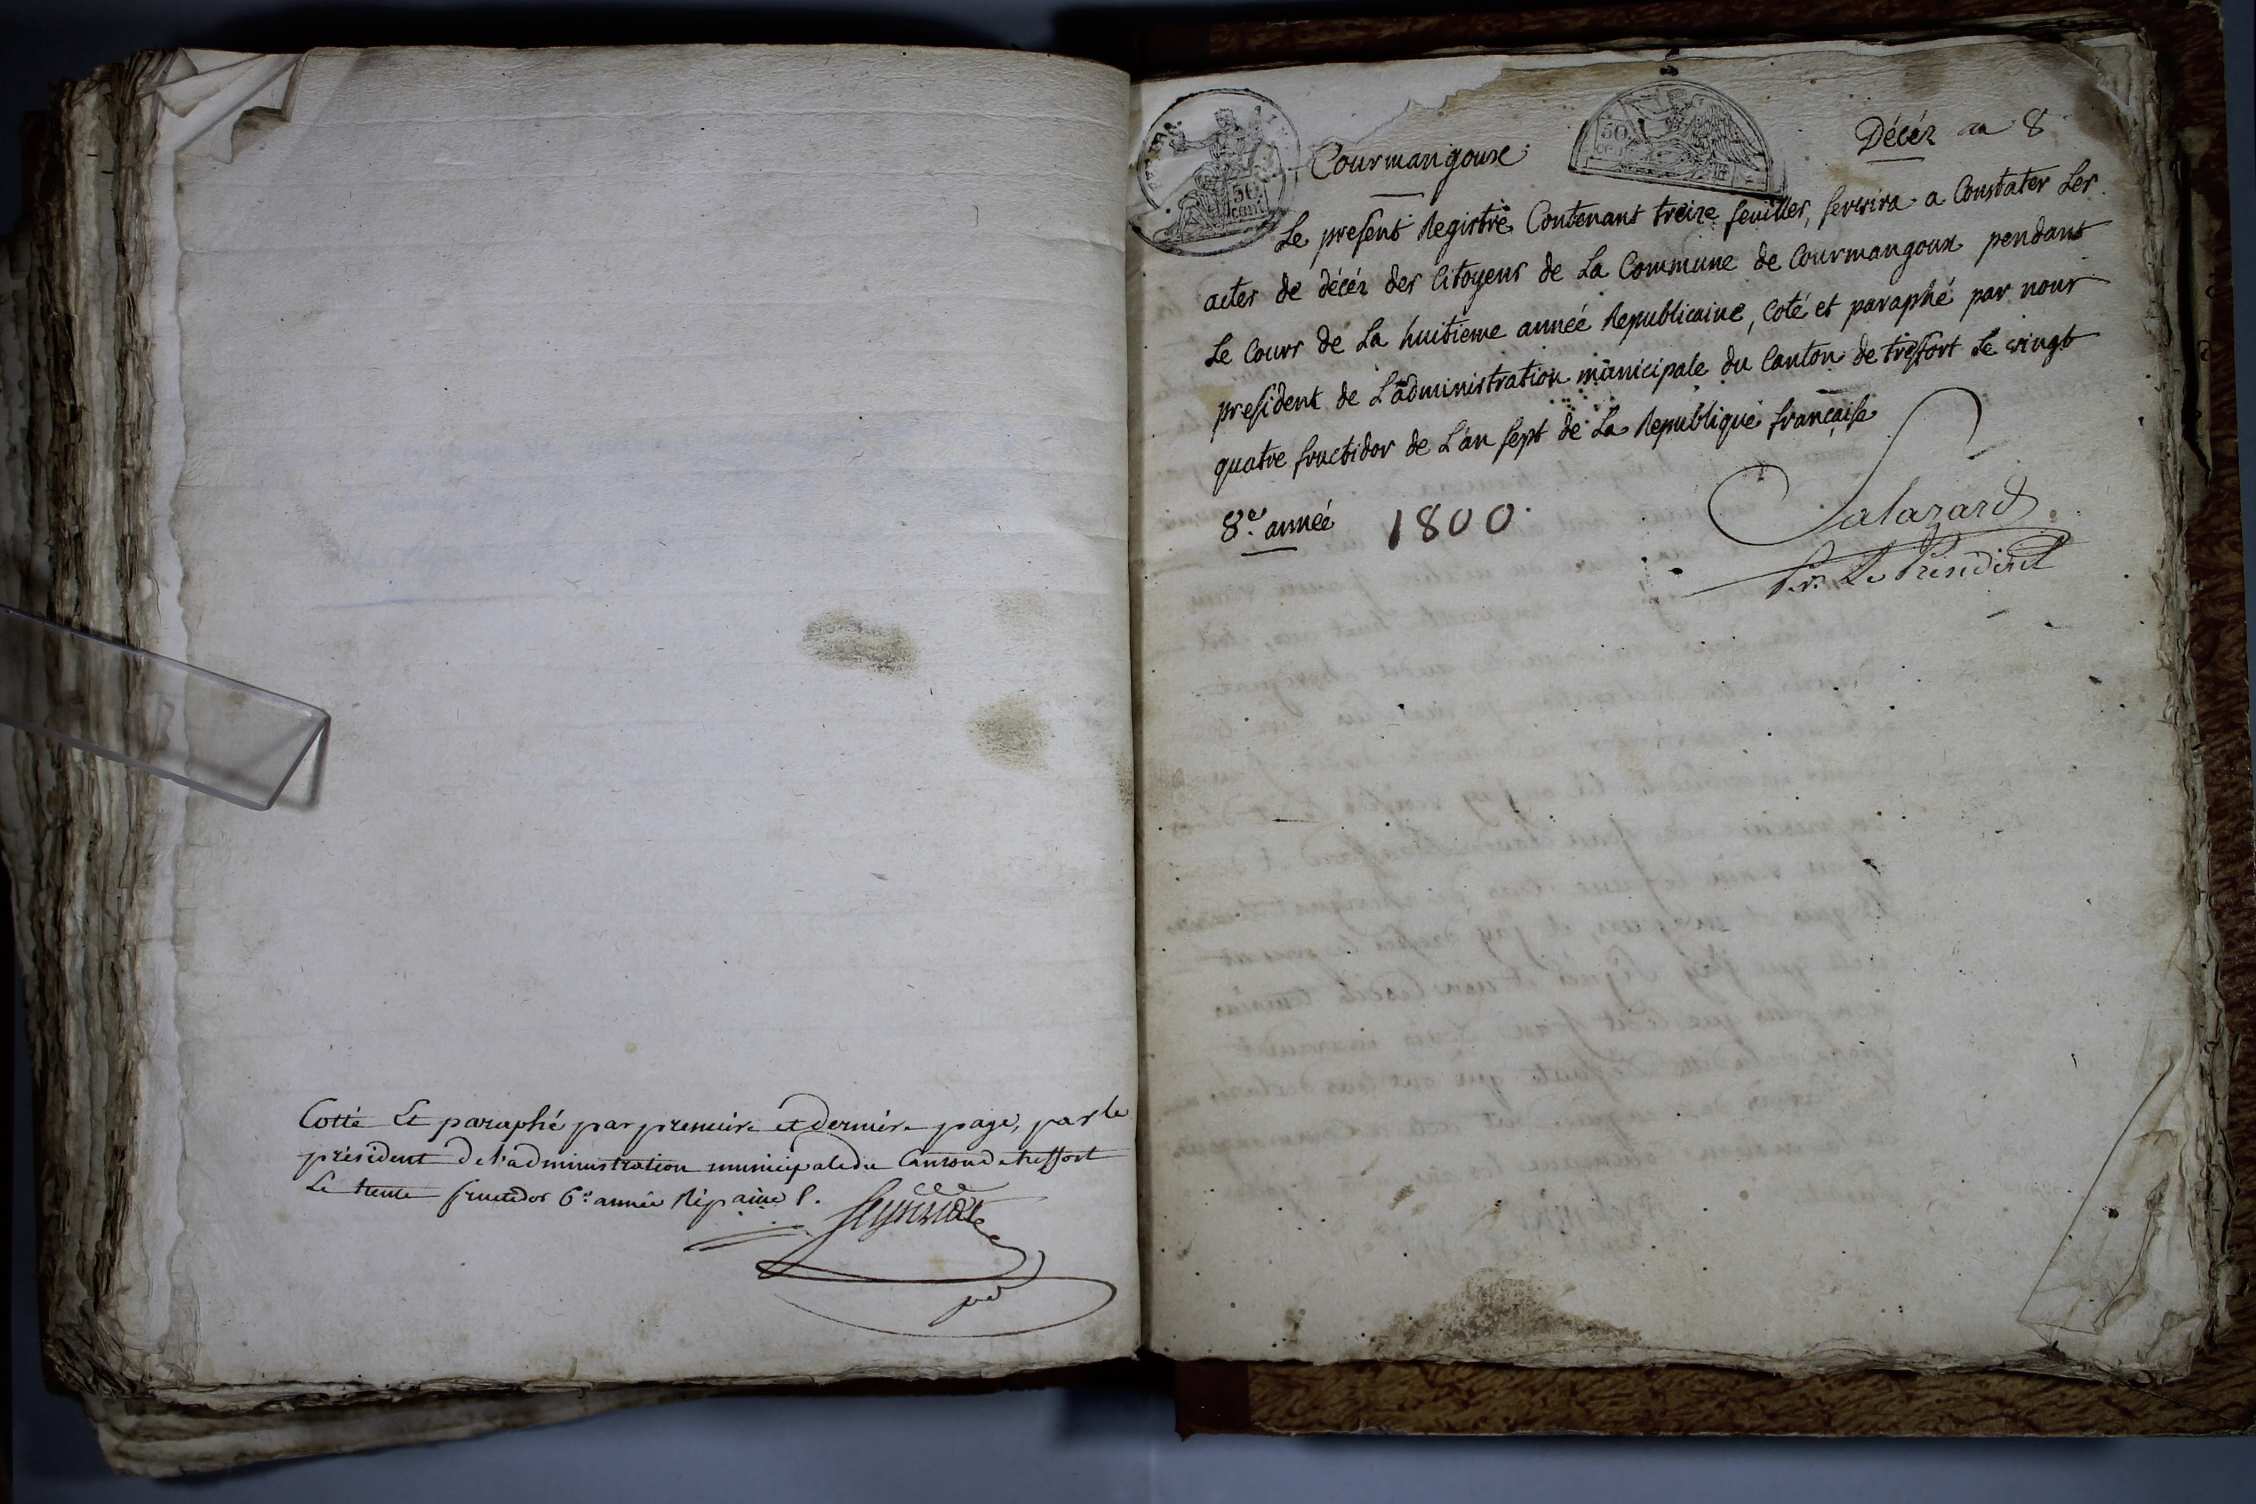 Cotté Et paraphé par premiere et derniere page, par le
président de l'administration municipale du Canton de treffort
Le trente fructidor 6.e année Répaine f.
Courmangoux
Décéz an 8
Le present Registre Contenant treize feuilles, servira a Constater Les
actes de décéz des Citoyens de La Commune de Courmangoux pendant
Le Cours de La huitieme année Republicaine, Coté et paraphé par nous
president de L'administration municipale du Canton de treffort Le vingt
quatre fructidor de L'an sept de La Republique française
8.e année 1800.
Salazard
Le Président
50
50
cent